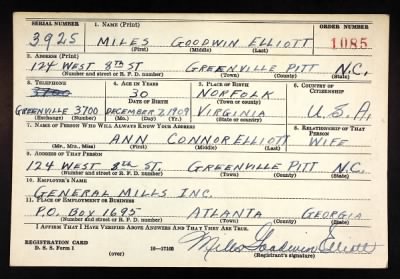 SERIAL NUMBER 1. NAME (Print) ORDER NUMBER
3925 MILES GOODWIN ELLIOTT 1085
(First) (Middle) (Last)
2. ADDRESS (Print)
124 WEST 8TH ST GREENVILLE PITT N.C.
(Number and street or R. F. D. number) (Town) (County) (State)
3. TELEPHONE 4. AGE IN YEARS 5. PLACE OF BIRTH 6. COUNTRY OF CITIZENSHIP
3700 30 NORFOLK
DATE OF BIRTH (Town or county)
GREENVILLE 3700 DECEMBER 7, 1909 VIRGINIA U.S.A.
(Exchange) (Number) (Mo.) (Day) (Yr.) (State or country)
7. NAME OF PERSON WHO WILL ALWAYS KNOW YOUR ADDRESS 8. RELATIONSHIP OF THAT PERSON
ANN CONNOR ELLIOTT WIFE
(Mr., Mrs., Miss) (First) (Middle) (Last)
9. ADDRESS OF THAT PERSON
124 WEST 8th ST. GREENVILLE PITT N.C.
(Number and street or R. F. D. number) (Town) (County) (State)
10. EMPLOYER'S NAME
GENERAL MILLS INC.
11. PLACE OF EMPLOYMENT OR BUSINESS
P.O. BOX 1695 ATLANTA GEORGIA
(Number and street or R. F. D. number) (Town) (County) (State)
I AFFIRM THAT I HAVE VERIFIED ABOVE ANSWERS AND THAT THEY ARE TRUE.
REGISTRATION CARD
D. S. S. Form 1 16—17105 Miles Goodwin Elliott
(over) (Registrant's signature)